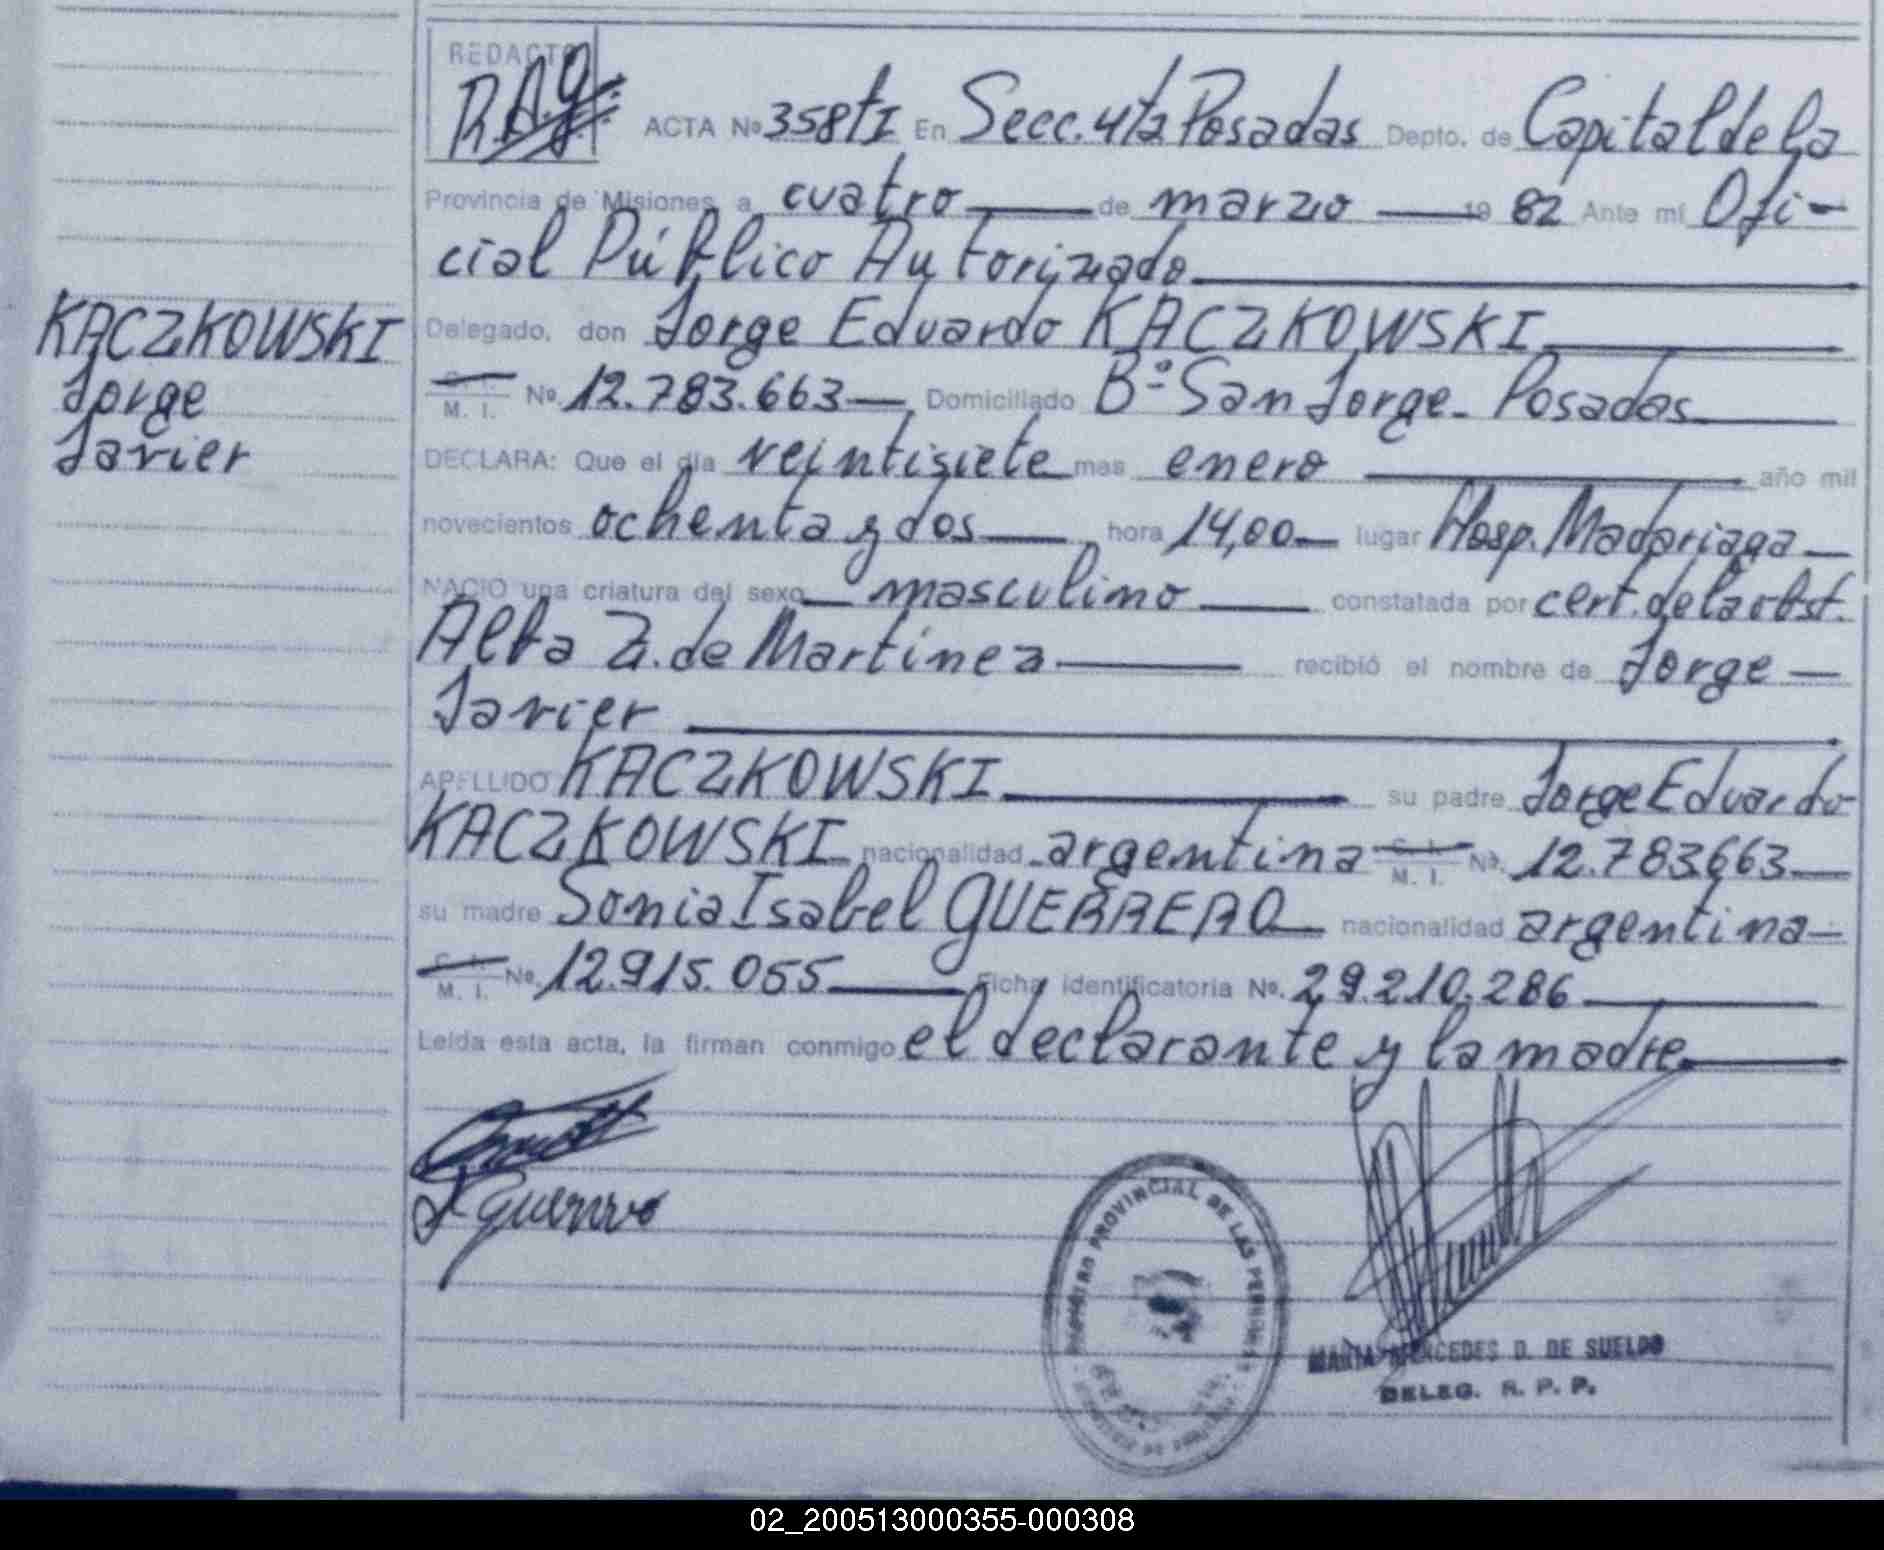 REDACTO
R.A.g.
ACTA Nº 358tI En Secc. 4ta Posadas Depto. de Capital de la
Provincia de Misiones, a cuatro de marzo 19 82 Ante mí Ofi-
cial Público Autorizado
KACZKOWSKI
Jorge
Javier
Delegado, don Jorge Eduardo KACZKOWSKI
C. I. M. I. Nº 12.783.663 Domiciliado Bº San Jorge - Posadas
DECLARA: Que el día veintisiete mes enero año mil
novecientos ochenta y dos, hora 14,00 lugar Hosp. Madariaga
NACIO una criatura del sexo masculino constatada por cert. de la obst.
Alba Z. de Martinez recibió el nombre de Jorge
Javier
APELLIDO KACZKOWSKI su padre Jorge Eduardo
KACZKOWSKI nacionalidad argentina C. I. M. I. Nº. 12.783663
su madre Sonia Isabel GUERRERO nacionalidad argentina
C. I. M. I. Nº. 12.915.055 Ficha identificatoria Nº. 29.210.286
Leída esta acta, la firman conmigo el declarante y la madre
S Guerrero
REGISTRO PROVINCIAL DE LAS PERSONAS
MARIA MERCEDES D. DE SUELDO
DELEG. R. P. P.
02_200513000355-000308